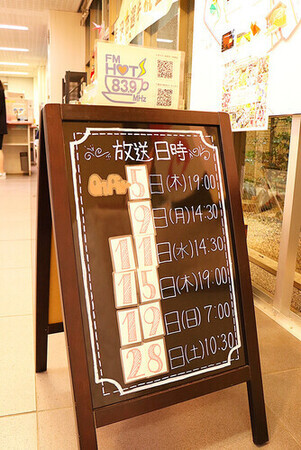 FM
HOT
83.9
MHz
放送日時
5日(木)19:00
9日(月)14:30
11日(水)14:30
15日(木)19:00
19日(日)7:00
28日(土)10:30